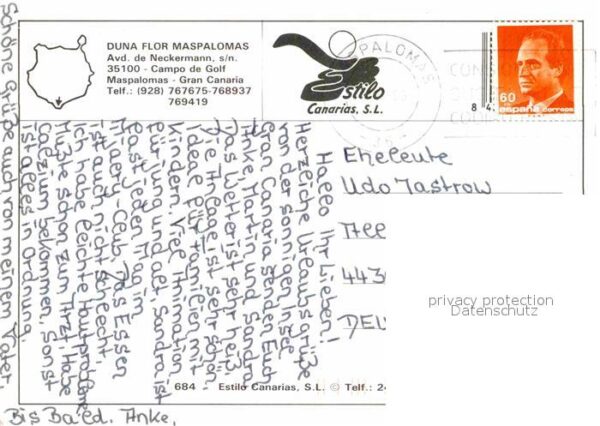 DUNA FLOR MASPALOMAS
Avd. de Neckermann, s/n.
35100 - Campo de Golf
Maspalomas - Gran Canaria
Telf.: (928) 767675-768937
769419
Estilo
Canarias, S.L.
PALOMAS
8 4
60
españa correos
Hallo Ihr Lieben!
Herzliche Urlaubsgrüße
von der sonnigen Insel
Gran Canaria senden Euch
Anke, Martin und Sandra.
Das Wetter ist sehr heiß
Die Anlage ist sehr schön.
Ideal für Familien mit
Kindern. Viel Animation
für jung und alt. Sandra ist
fast jeden Tag im
Club. Das Essen
ist auch nicht schlecht.
Ich habe leichte Hautprobleme
Mußte schon zum Arzt. Habe
bekommen. Sonst
ist alles in Ordnung.
Schöne Grüße auch von meinem Vater.
Bis Bald. Anke.
Eheleute
Udo Jastrow
443
684 Estilo Canarias, S.L. © Telf.: 2
privacy protection
Datenschutz